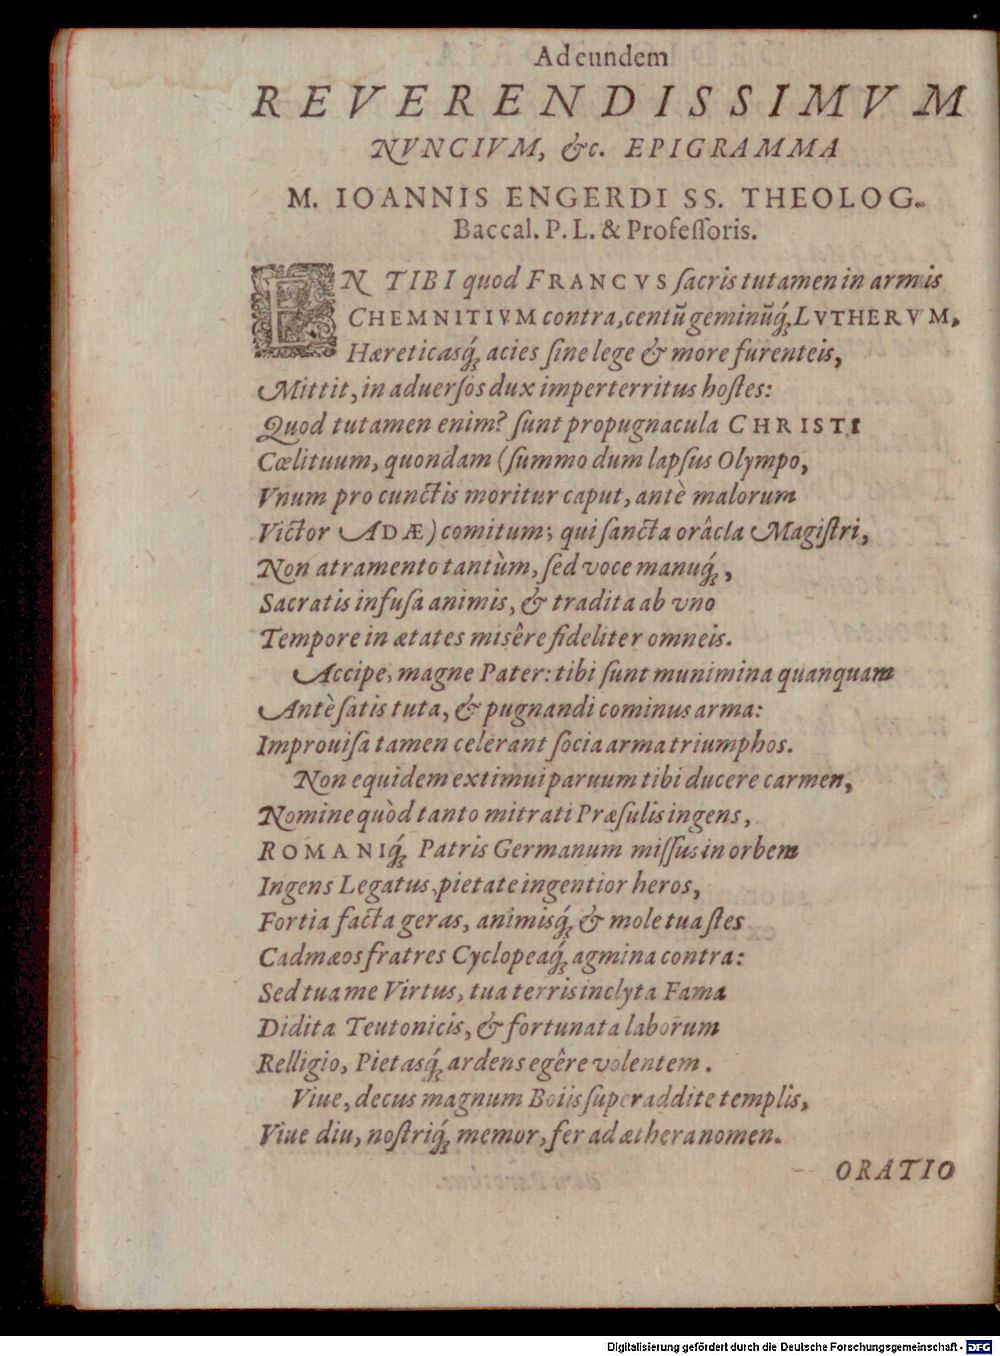 Ad eundem
REVERENDISSIMVM
NVNCIVM, &c. EPIGRAMMA
M. IOANNIS ENGERDI SS. THEOLOG.
Baccal. P. L. & Profeſſoris.
EN TIBI quod FRANCVS ſacris tutamen in armis
CHEMNITIVM contra, centũ geminũq́; LVTHERVM,
Hæreticasq́; acies ſine lege & more furenteis,
Mittit, in aduerſos dux imperterritus hoſtes:
Quod tutamen enim? ſunt propugnacula CHRISTI
Cœlituum, quondam (ſummo dum lapſus Olympo,
Vnum pro cunctis moritur caput, antè malorum
Victor ADÆ) comitum; qui ſancta orâcla Magiſtri,
Non atramento tantùm, ſed voce manuq́;,
Sacratis infuſa animis, & tradita ab vno
Tempore in ætates misêre fideliter omneis.
Accipe, magne Pater: tibi ſunt munimina quanquam
Antè ſatis tuta, & pugnandi cominus arma:
Improuiſa tamen celerant ſocia arma triumphos.
Non equidem extimui paruum tibi ducere carmen,
Nomine quòd tanto mitrati Præſulis ingens,
ROMANIq́; Patris Germanum miſſus in orbem
Ingens Legatus, pietate ingentior heros,
Fortia facta geras, animisq́; & mole tua ſtes
Cadmæos fratres Cyclopeaq́; agmina contra:
Sed tua me Virtus, tua terris inclyta Fama
Didita Teutonicis, & fortunata laborum
Relligio, Pietasq́; ardens egêre volentem.
Viue, decus magnum Boiis ſuperaddite templis,
Viue diu, noſtriq́; memor, fer ad æthera nomen.
ORATIO
Digitalisierung gefördert durch die Deutsche Forschungsgemeinschaft - DFG